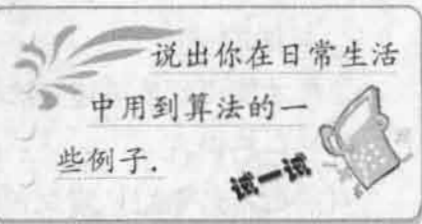 说出你在日常生活
中用到算法的一
些例子.
试一试